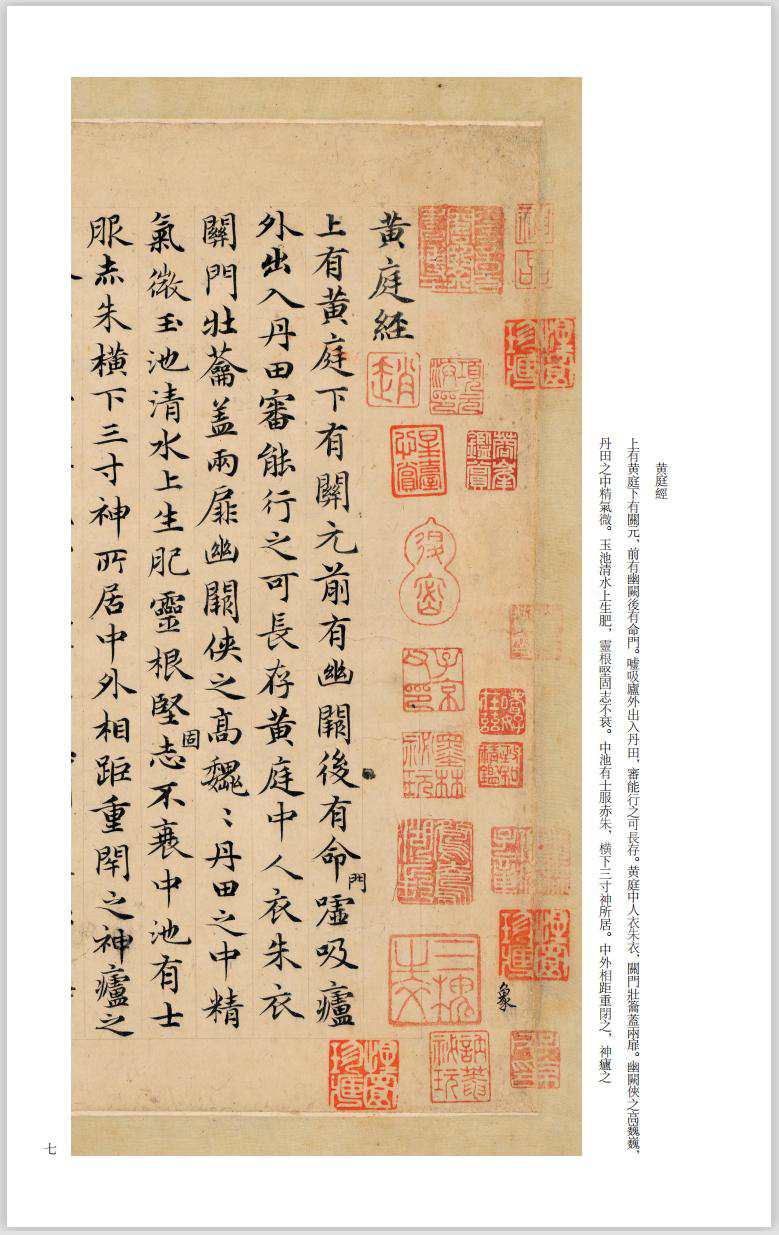 黄庭經
上有黄庭下有關元，前有幽闕後有命門。噓吸廬外出入丹田，審能行之可長存。黄庭中人衣朱衣，關門壯籥蓋兩扉。幽闕俠之高巍巍，
丹田之中精氣微。玉池清水上生肥，靈根堅固志不衰。中池有士服赤朱，横下三寸神所居。中外相距重閉之，神廬之
象
子京父印
墨林祕玩
趙
黄庭經
上有黄庭下有關元前有幽闕後有命門噓吸廬
外出入丹田審能行之可長存黄庭中人衣朱衣
關門壯籥盖兩扉幽闕俠之高巍〻丹田之中精
氣微玉池清水上生肥靈根堅固志不衰中池有士
服赤朱橫下三寸神所居中外相距重閉之神廬之
七